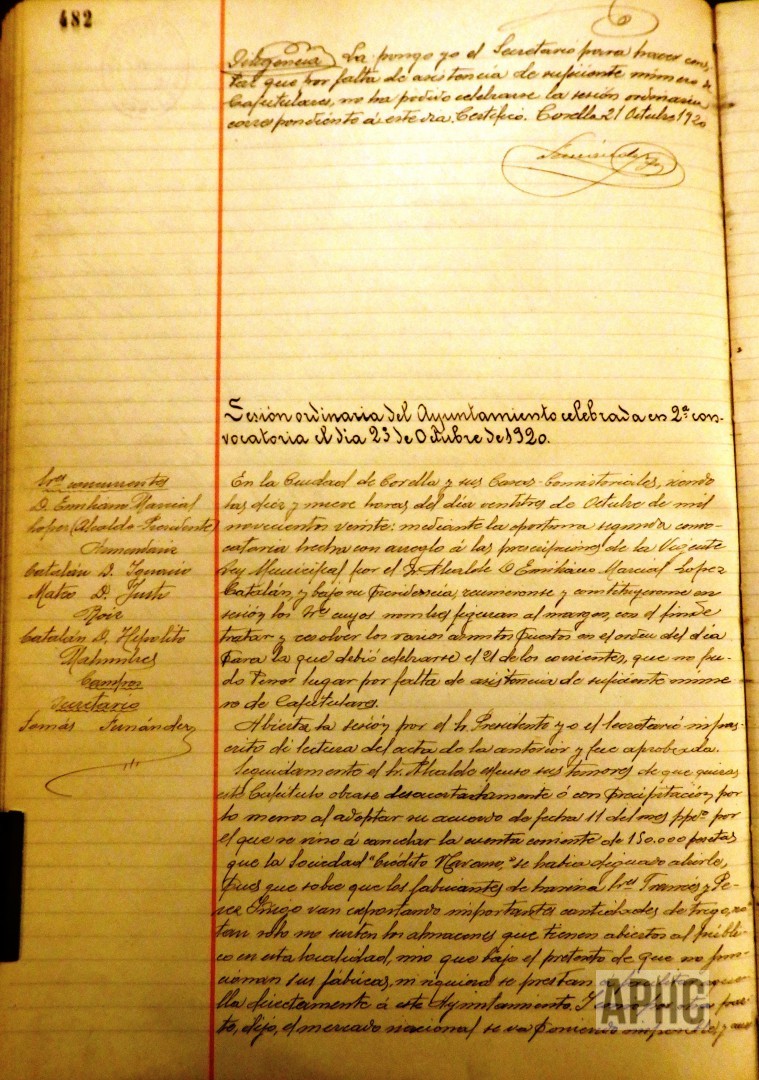 482
Diligencia. La pongo yo el Secretario para hacer cons-
tar que por falta de asistencia de suficiente número de
Capitulares, no ha podido celebrarse la sesión ordinaria
correspondiente á este día. Certifico. Corella 21 Octubre 1920
Sesión ordinaria del Ayuntamiento celebrada en 2ª con-
vocatoria el dia 23 de Octubre de 1920.
Sres concurrentes
D. Emiliano Marcial
Lopez (Alcalde-Presidente)
Armendariz
Catalán D. Jenario
Mateo D. Justo
Roiz
Catalán D. Hipolito
Malumbres
Campos
Secretario
Tomás Fernández
En la Ciudad de Corella y sus Casas-Consistoriales, siendo
las diez y nueve horas del día ventitres de Octubre de mil
novecientos veinte: mediante la oportuna segunda convo-
catoria hecha con arreglo á las prescripciones de la Vigente
Ley Municipal por el Sr. Alcalde D Emiliano Marcial Lopez
Catalán, y bajo su Presidencia, reunieronse y constituyeronse en
sesión los Sres cuyos nombres figuran al margen, con el fin de
tratar y resolver los varios asuntos puestos en el orden del día
para la que debió celebrarse el 21 de los corrientes, que no pu-
do tener lugar por falta de asistencia de suficiente núme-
ro de Capitulares.
Abierta la sesión por el Sr. Presidente yo el Secretario infras-
crito di lectura del acta de la anterior y fue aprobada.
Seguidamente el Sr. Alcalde expuso sus temores de que quizas
este Capitulo obrase desacertadamente ó con precipitación, por
lo menos al adoptar su acuerdo de fecha 11 del mes ppdo por
el que se vino á cancelar la cuenta corriente de 150.000 pesetas
que la Sociedad "Crédito Navarro," se había dignado abrirle,
pues que sobre que los fabricantes de harina Sres Francés y Pe-
rez Iñigo van exportando importantes cantidades de trigo, no
tan solo no surten los almacenes que tienen abiertos al públi-
co en esta localidad, sino que bajo el pretexto de que no fun-
cionan sus fábricas, ni siquiera se prestan
lla directamente á este Ayuntamiento.
te, dijo, el mercado nacional se va poniendo
APHC